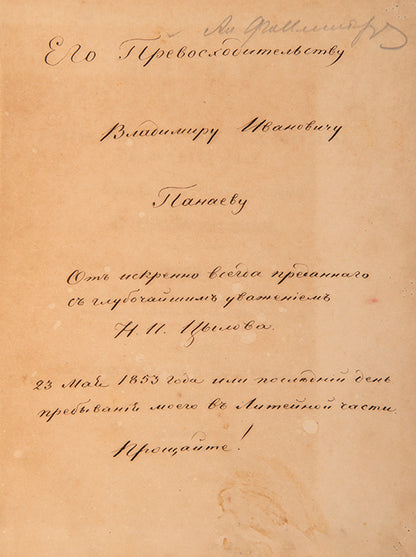 Его Превосходительству
Владимиру Ивановичу
Панаеву
Отъ искренно всегда преданнаго
съ глубочайшимъ уваженіемъ
Н. И. Цылова.
23 Мая 1853 года или последній день
пребыванія моего въ Литейной части.
Прощайте!